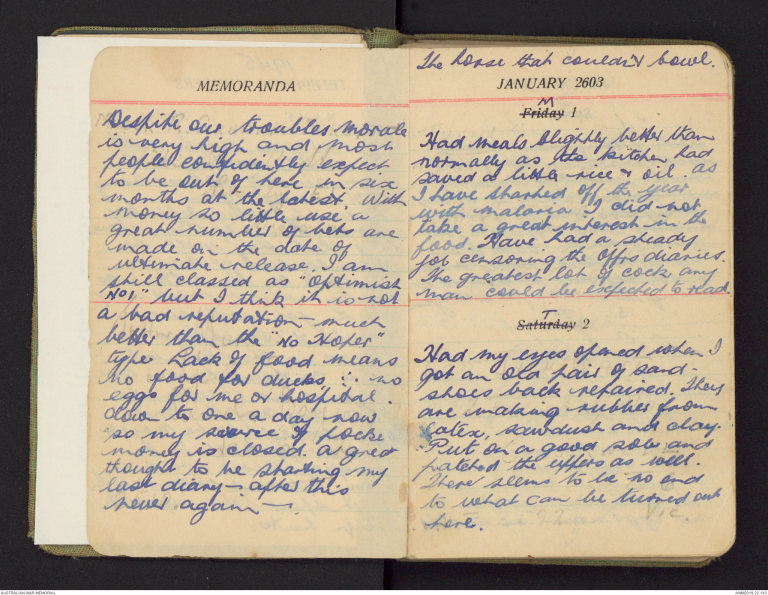 MEMORANDA
Despite our troubles morale
is very high and most
people confidently expect
to be out of here in six
months at the latest. With
money so little use a
great number of bets are
made on the date of
ultimate release. I am
still classed as "Optimist
No1" but I think it is not
a bad reputation – much
better than the "No Hoper"
type. Lack of food means
no food for ducks ∴ no
eggs for me or hospital.
down to one a day now
so my source of pocket
money is closed. A great
thought to be starting my
last diary – after this
never again –.
The horse that couldn't bowl.
JANUARY 2603
M
Friday 1
Had meals slightly better than
normally as the kitchen had
saved a little rice & oil. as
I have started off the year
with malaria I did not
take a great interest in the
food. Have had a steady
job censoring the Offrs diaries.
The greatest lot of cock any
man could be expected to read.
T
Saturday 2
Had my eyes opened when I
got an old pair of sand-
shoes back repaired. They
are making rubber from
latex, sawdust and clay.
Put on a good sole and
patched the uppers as well.
There seems to be no end
to what can be turned out
here.
Vic.
AUSTRALIAN WAR MEMORIAL